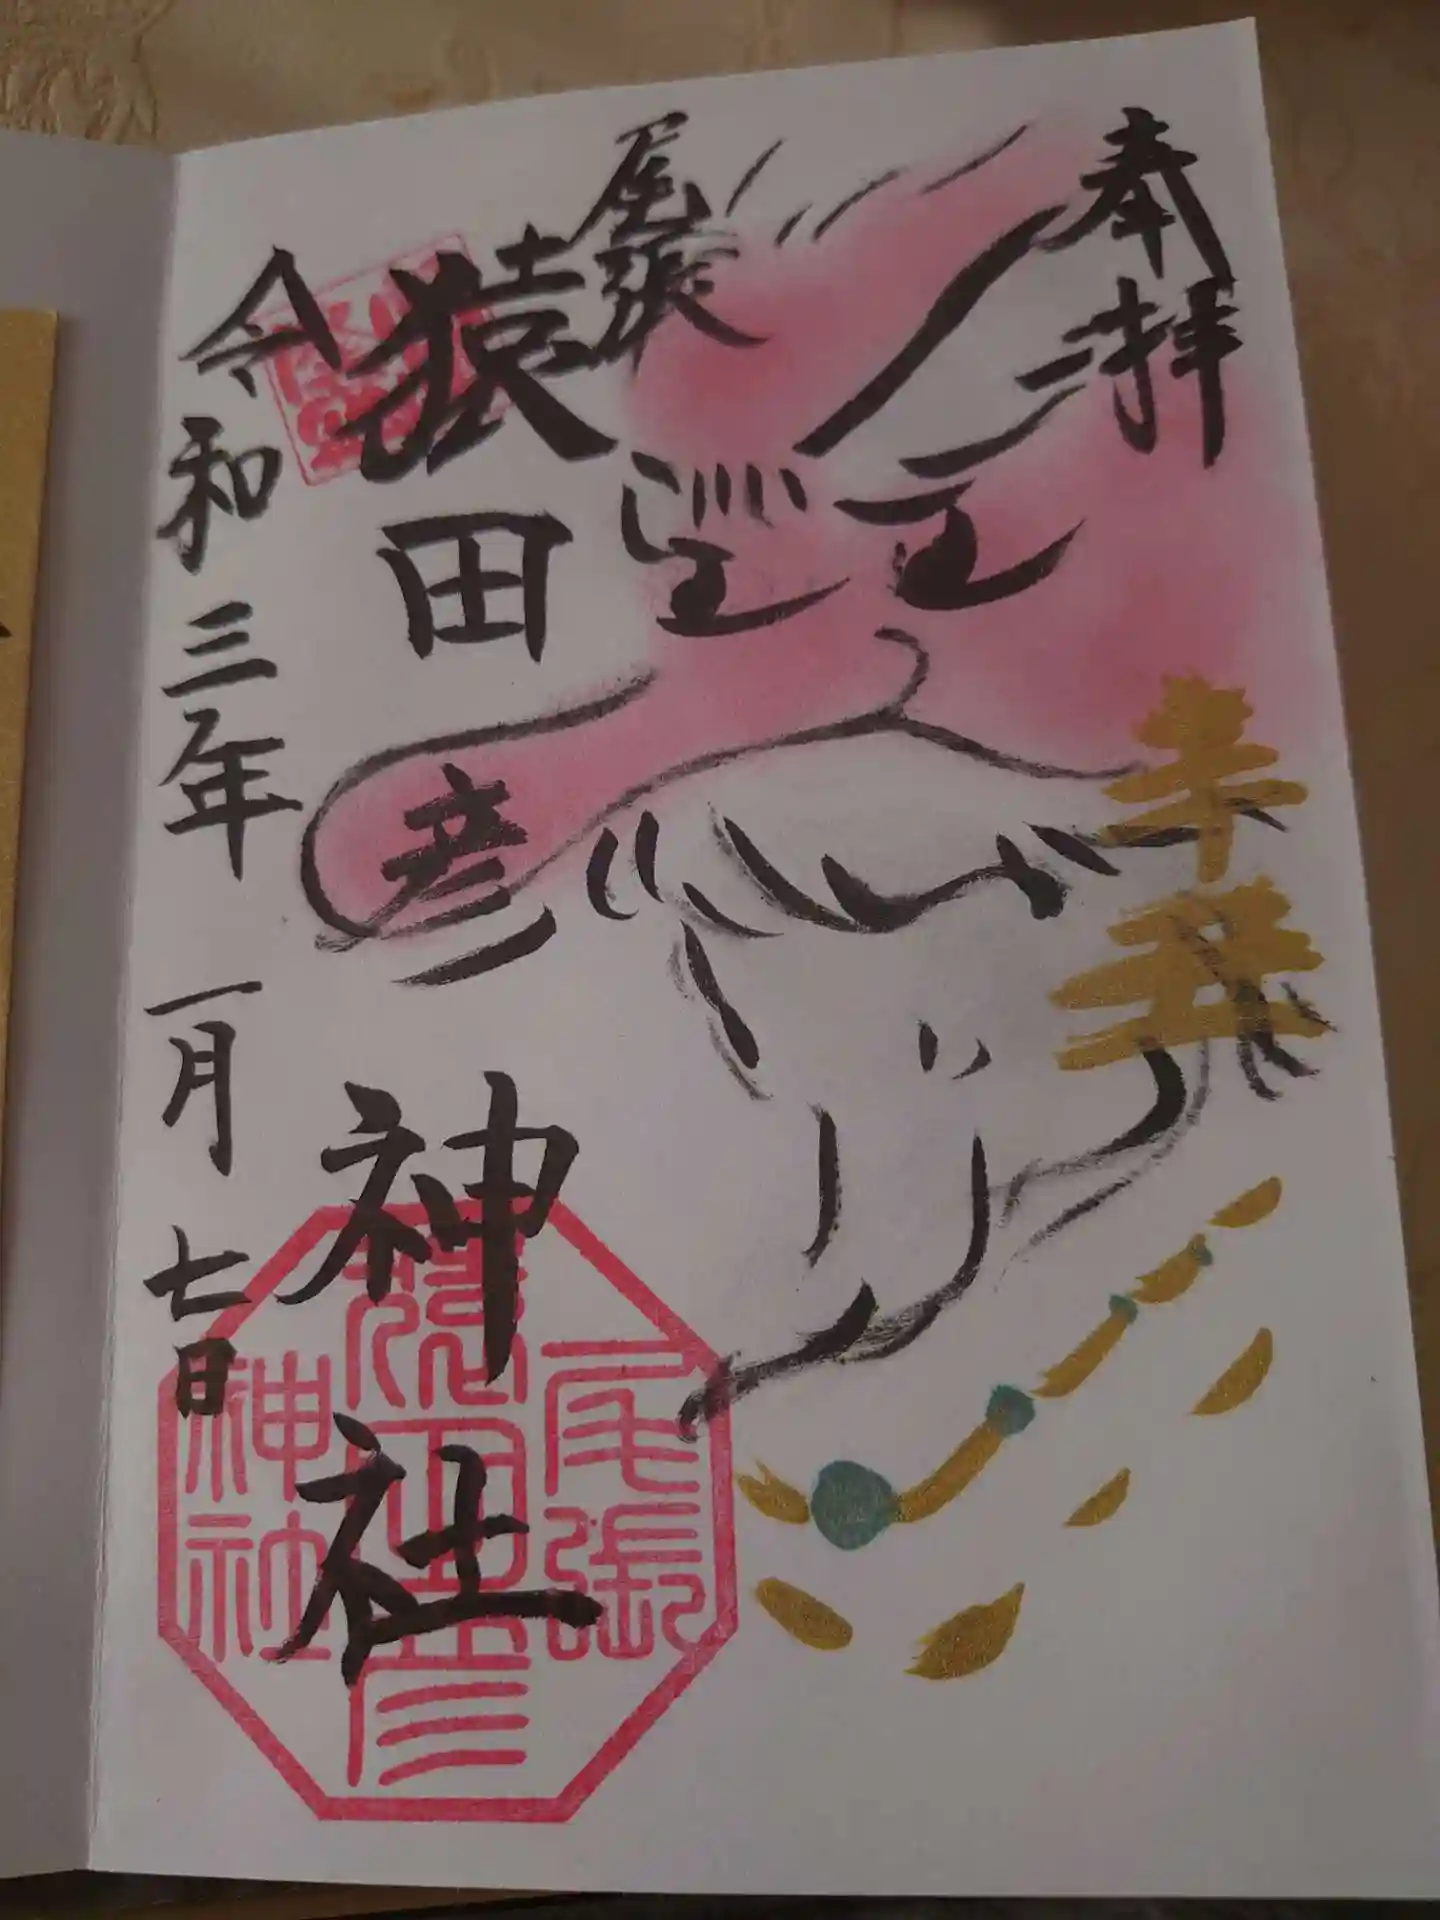 奉拝
尾張
猿田彦神社
令和三年一月七日
尾張
猿田彦
神社